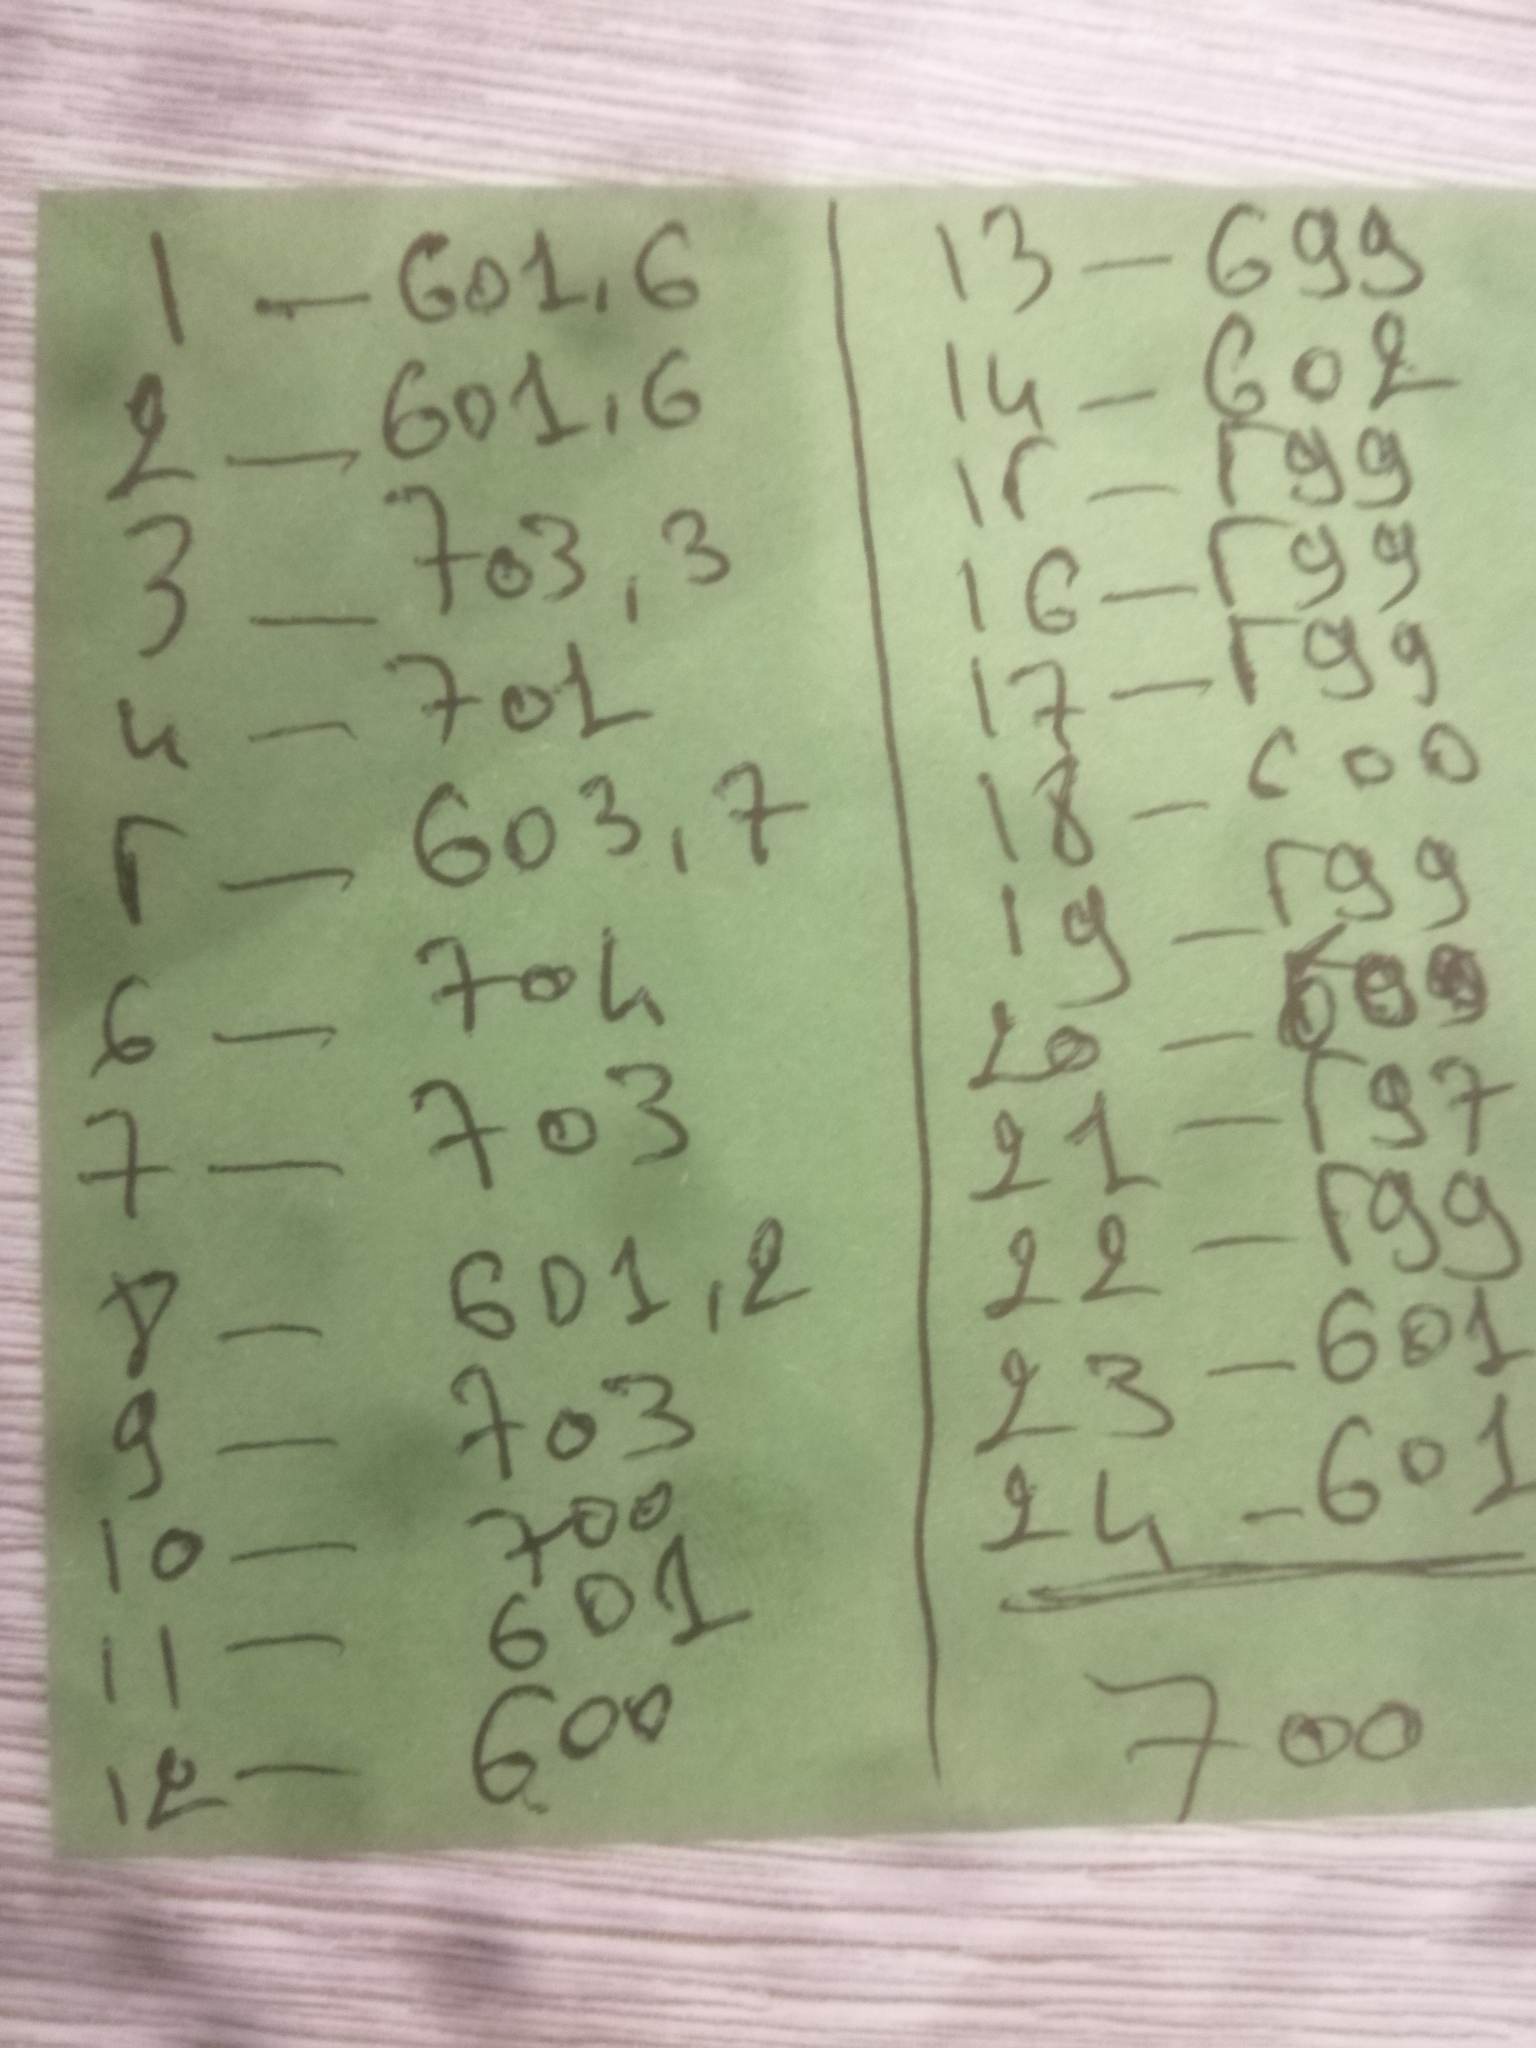 1 — 601,6
2 — 601,6
3 — 703,3
4 — 701
5 — 603,7
6 — 704
7 — 703
8 — 601,2
9 — 703
10 — 700
11 — 601
12 — 600
13 — 699
14 — 602
15 — 599
16 — 599
17 — 599
18 — 600
19 — 599
20 —
21 — 597
22 — 599
23 — 601
24 — 601
700